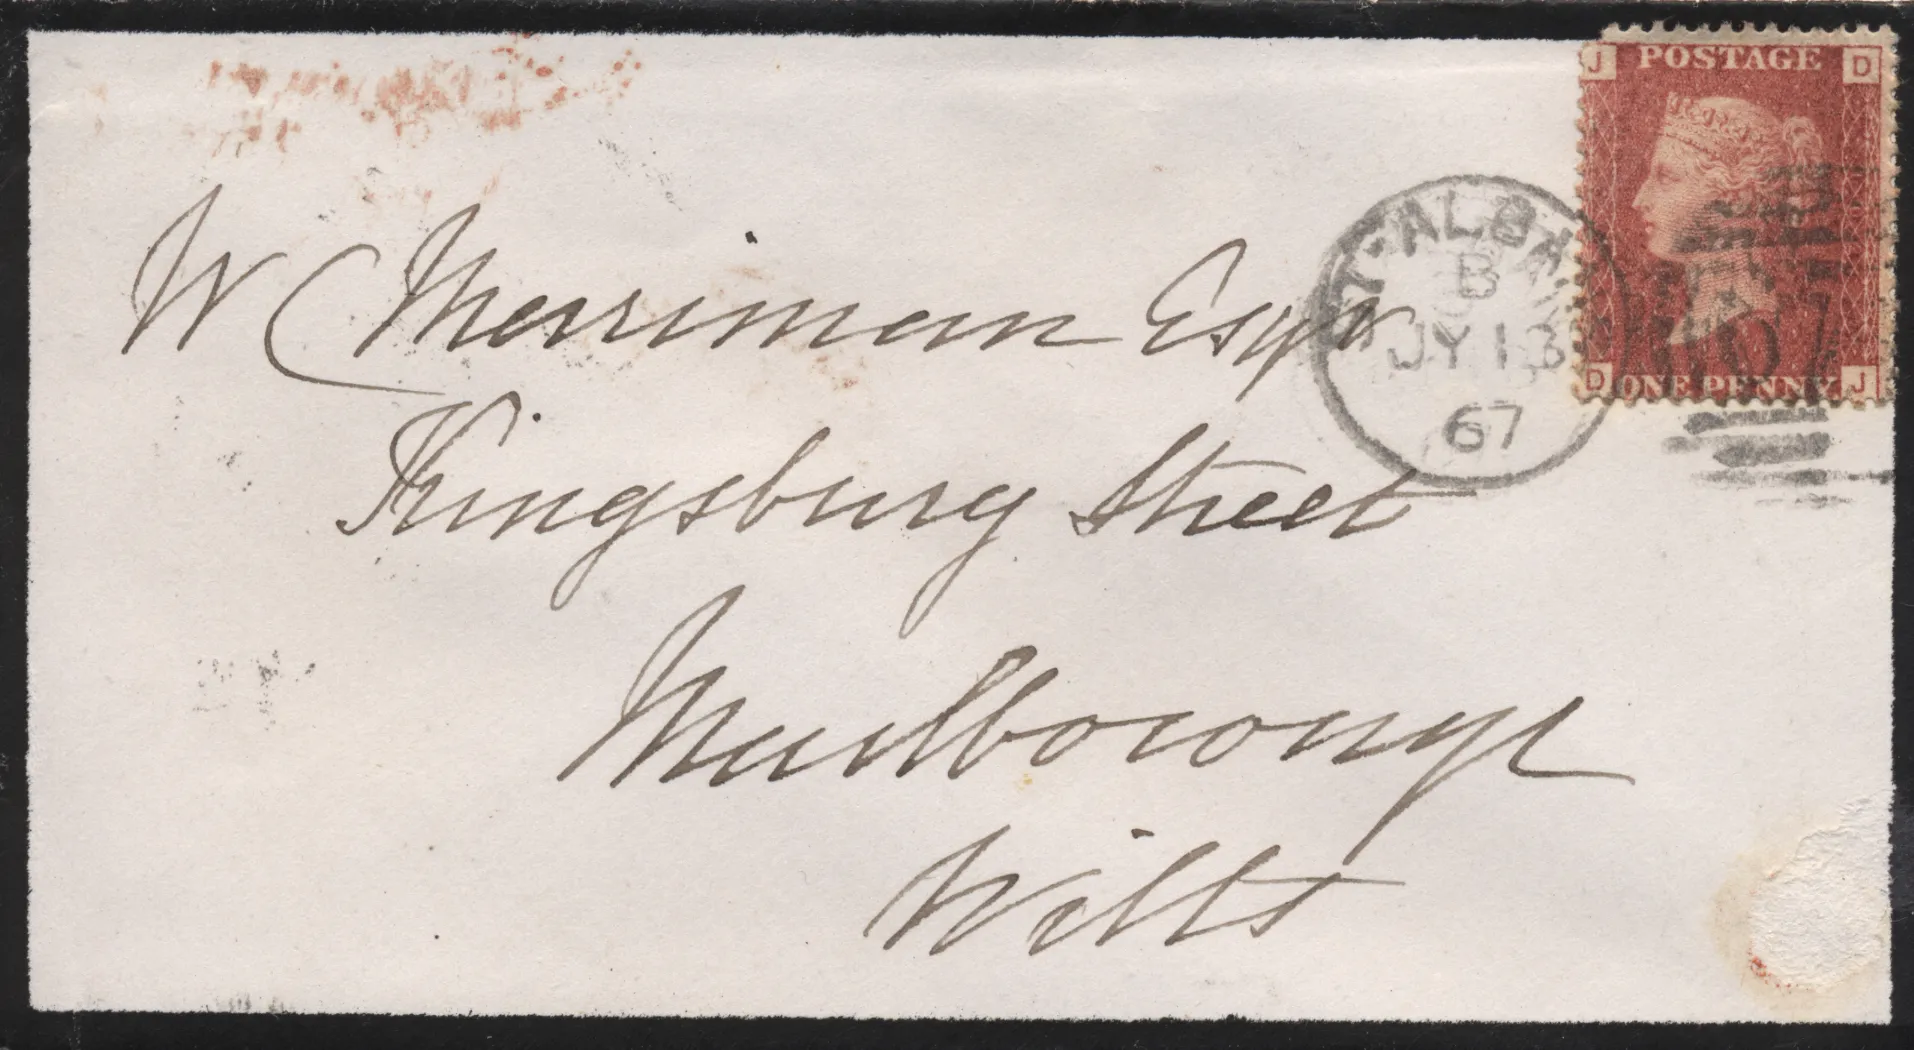 J POSTAGE D
ST·ALBANS
B
JY 13
67
D ONE PENNY J
W C Merriman Esqr
Kingsbury Street
Marlborough
Wilts